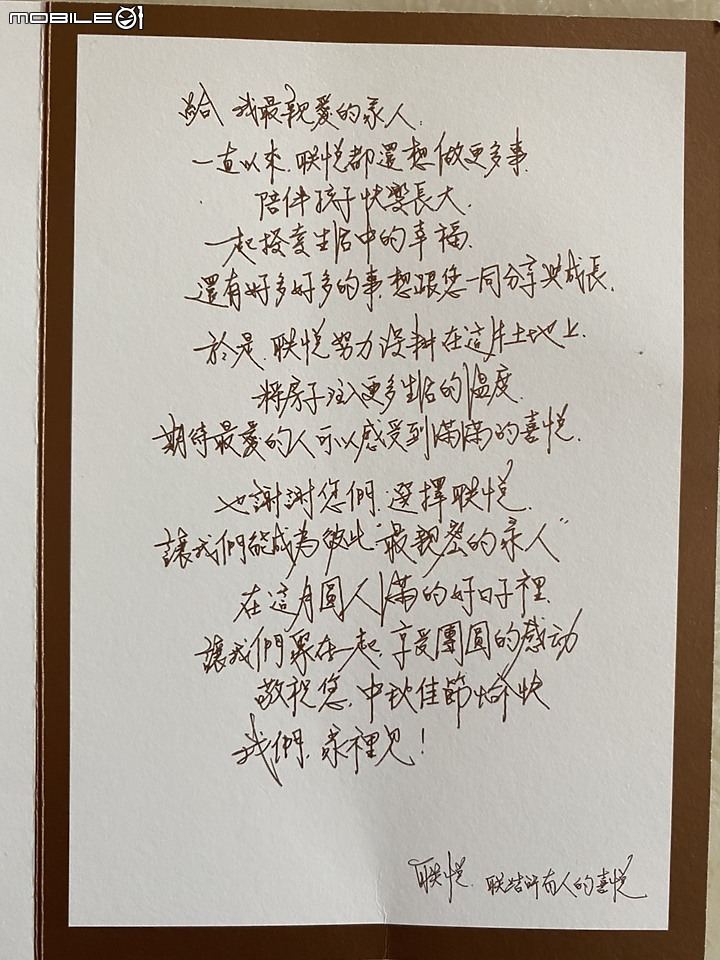 MOBILE01
給 我最親愛的家人:
一直以來.联悅都還想做更多事.
陪伴孩子快樂長大.
一起探索生活中的幸福.
還有好多好多的事.想跟您一同分享與成長.
於是.联悅努力深耕在這片土地上.
將房子注入更多生活的溫度.
期待最愛的人可以感受到滿滿的喜悅.
也謝謝您們.選擇联悅.
讓我們能成為彼此"最親密的家人"
在這月圓人滿的好日子裡.
讓我們聚在一起.享受團圓的感动
敬祝您.中秋佳節愉快
我們.家裡見!
联悅. 联結所有人的喜悅